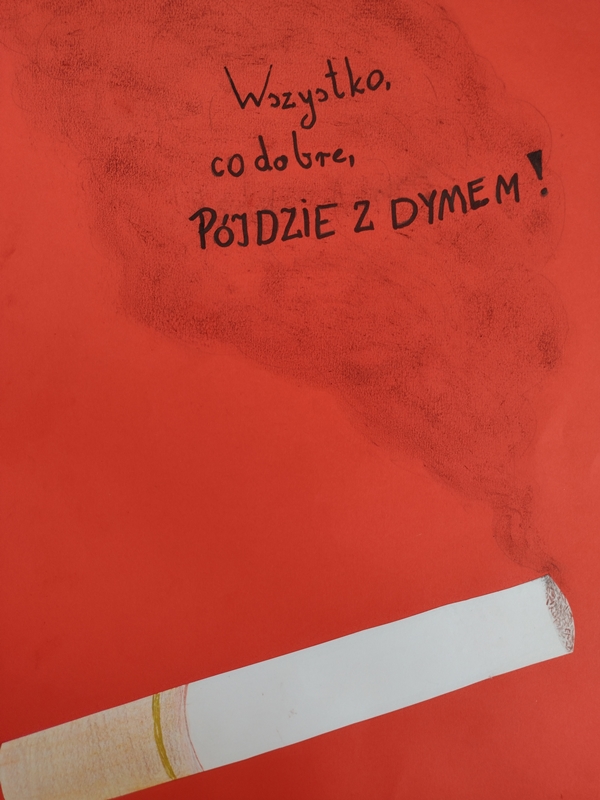 Wszystko,
co dobre,
PÓJDZIE Z DYMEM!